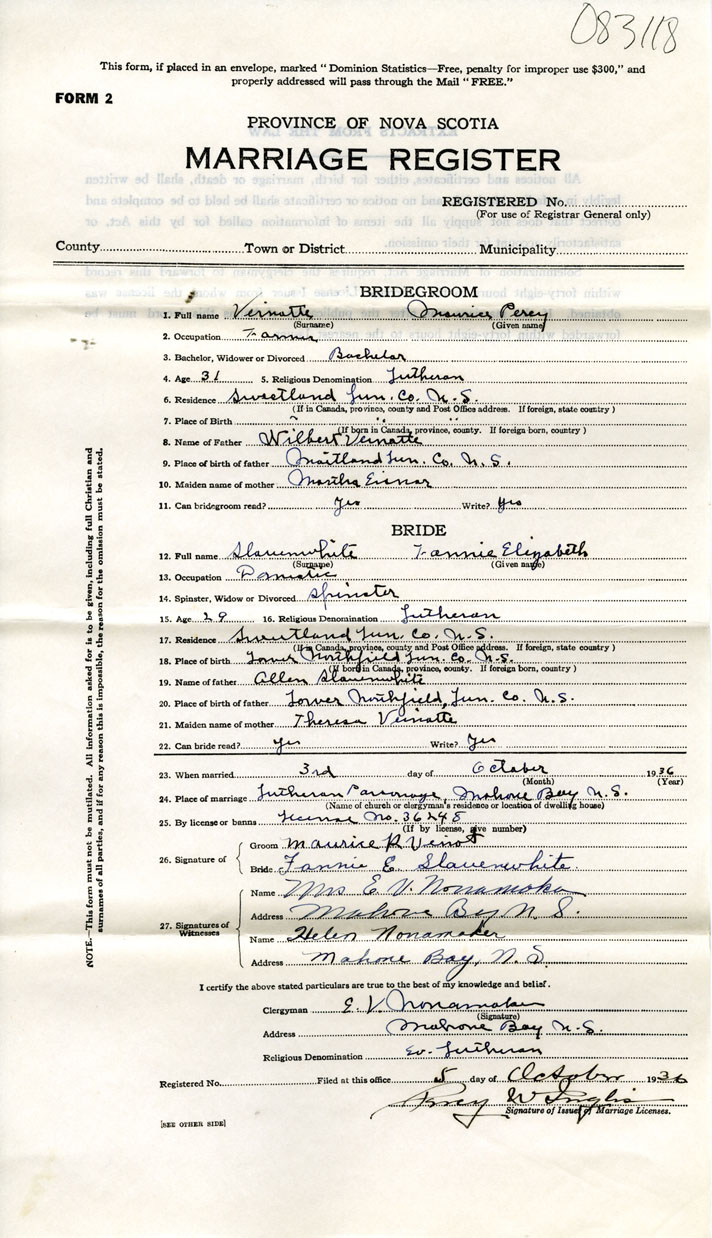 083118
This form, if placed in an envelope, marked “Dominion Statistics—Free, penalty for improper use $300,” and
properly addressed will pass through the Mail “FREE.”
FORM 2
PROVINCE OF NOVA SCOTIA
MARRIAGE REGISTER
REGISTERED No.
(For use of Registrar General only)
County Town or District Municipality
BRIDEGROOM
1. Full name Veinotte Maurice Percy
(Surname) (Given name)
2. Occupation Farmer
3. Bachelor, Widower or Divorced Bachelor
4. Age 31 5. Religious Denomination Lutheran
6. Residence Sweetland Lun. Co. N.S.
(If in Canada, province, county and Post Office address. If foreign, state country)
7. Place of Birth " " "
(If born in Canada, province, county. If foreign born, country)
8. Name of Father Wilbert Veinotte
9. Place of birth of father Maitland Lun. Co. N.S.
10. Maiden name of mother Martha Eisnor
11. Can bridegroom read? Yes Write? Yes
BRIDE
12. Full name Slauenwhite Fannie Elizabeth
(Surname) (Given name)
13. Occupation Domestic
14. Spinster, Widow or Divorced Spinster
15. Age 29 16. Religious Denomination Lutheran
17. Residence Sweetland Lun. Co. N.S.
(If in Canada, province, county and Post Office address. If foreign, state country)
18. Place of birth Lower Northfield Lun. Co. N.S.
(If born in Canada, province, county. If foreign born, country)
19. Name of father Allen Slauenwhite
20. Place of birth of father Lower Northfield, Lun. Co. N.S.
21. Maiden name of mother Theresa Veinotte
22. Can bride read? Yes Write? Yes
23. When married 3rd day of October 1936
(Month) (Year)
24. Place of marriage Lutheran Parsonage, Mahone Bay N.S.
(Name of church or clergyman's residence or location of dwelling house)
25. By license or banns License No. 36248
(If by license, give number)
26. Signature of Groom Maurice P. Veinot
Bride Fannie E. Slauenwhite
27. Signatures of Witnesses
Name Mrs E. V. Nonamaker
Address Mahone Bay N.S.
Name Helen Nonamaker
Address Mahone Bay, N.S.
I certify the above stated particulars are true to the best of my knowledge and belief.
Clergyman E. V. Nonamaker
(Signature)
Address Mahone Bay N.S.
Religious Denomination Ev. Lutheran
Registered No. Filed at this office 5 day of October 1936
Signature of Issuer of Marriage Licenses.
[SEE OTHER SIDE]
NOTE.—This form must not be mutilated. All information asked for is to be given, including full Christian and
surnames of all parties, and if for any reason this is impossible, the reason for the omission must be stated.